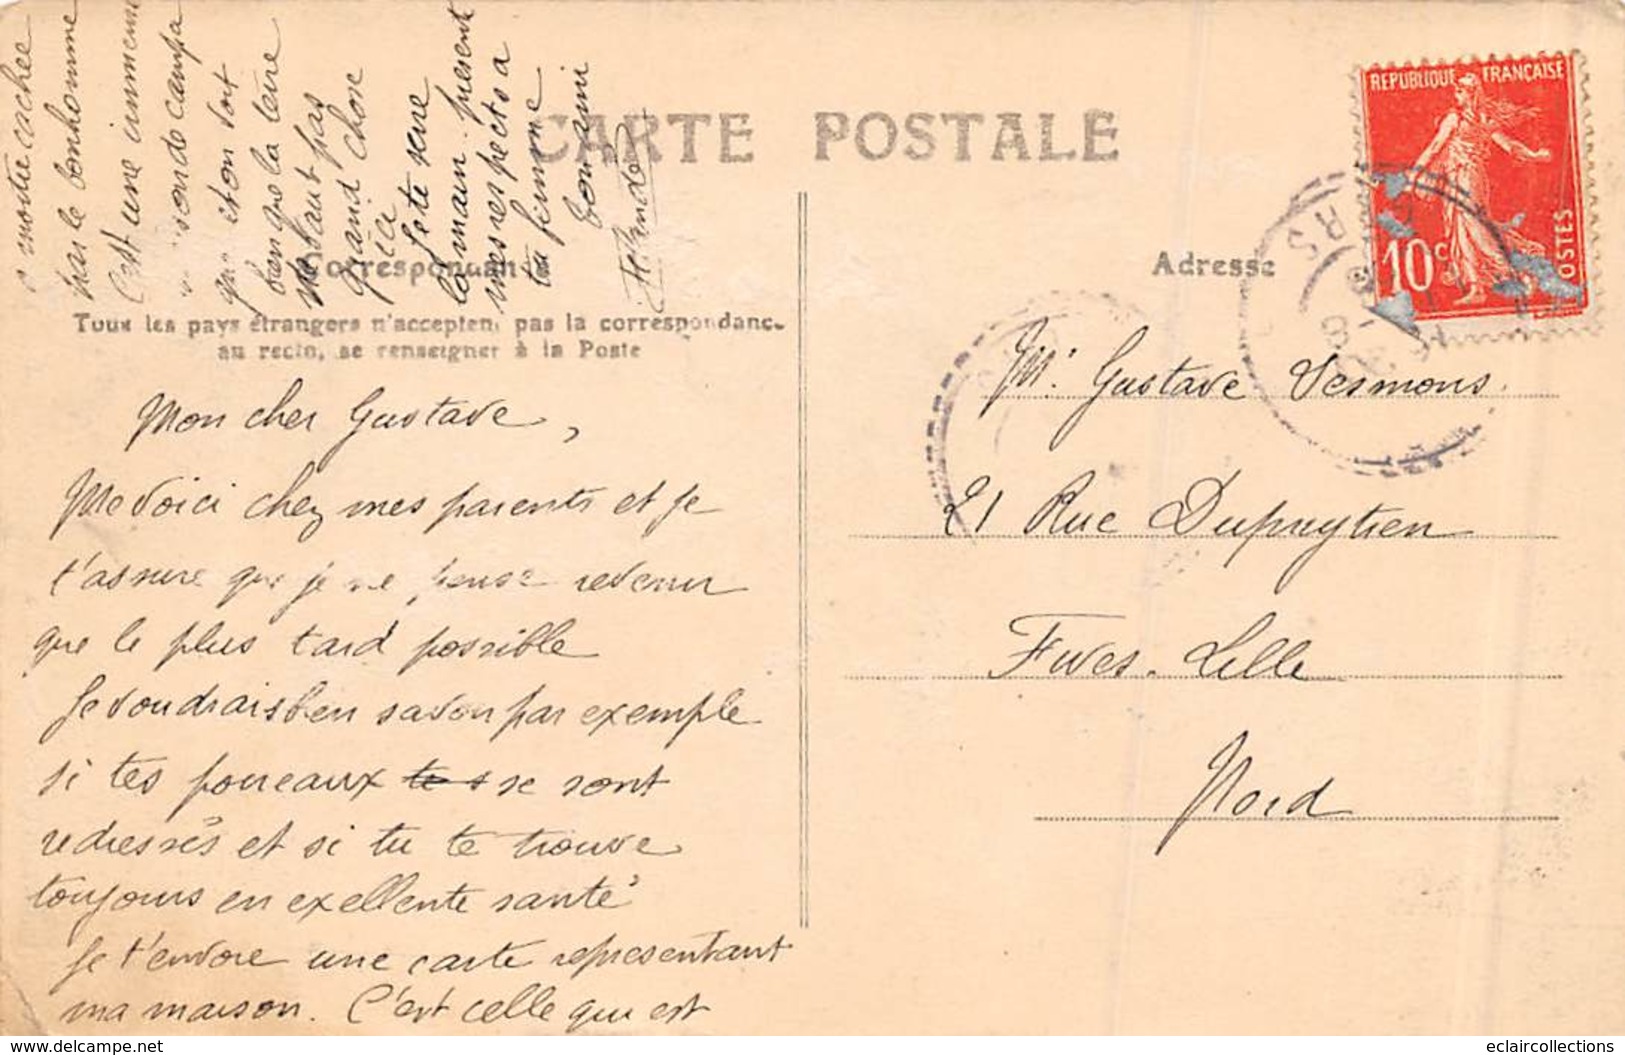 CARTE POSTALE
Correspondance
Tous les pays étrangers n'acceptent pas la correspondance
au recto, se renseigner à la Poste
Mon cher Gustave,
Me voici chez mes parents et je
t'assure que je ne pense revenir
que le plus tard possible
Je voudrais ben savon par exemple
si tes poireaux se sont
redressés et si tu te trouve
toujours en exellente santé
Je t'envoie une carte representant
ma maison. C'est celle qui est
montré cachée
par le bonhomme
C'est une immense
campa
que et on voit
ben que la terre
ne vaut pas
grand'chose
ici
Je te serre
la main. present
mes respects a
ta femme
ton ami
Adresse
REPUBLIQUE FRANÇAISE
10c
POSTES
Mr. Gustave Desmons
21 Rue Dupuytren
Fives-Lille
Nord
www.delcampe.net
eclaircollections